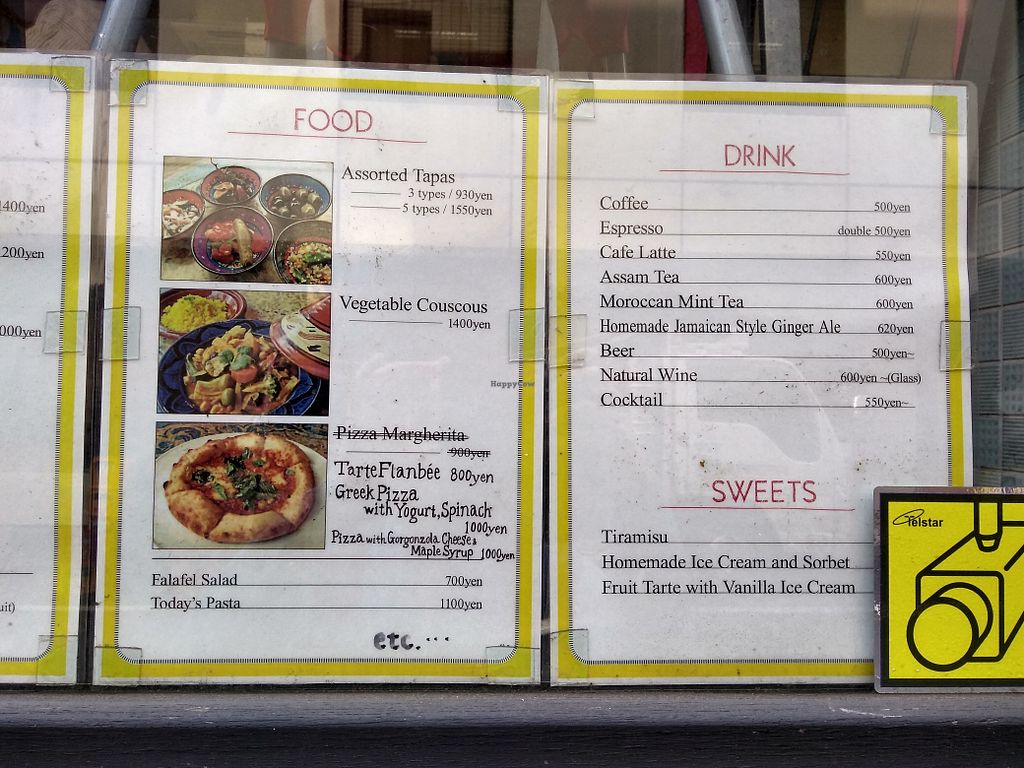 1400yen
200yen
000yen
uit)
FOOD
Assorted Tapas
3 types / 930yen
5 types / 1550yen
Vegetable Couscous
1400yen
HappyCow
Pizza Margherita
900yen
Tarte Flanbée 800yen
Greek Pizza
with Yogurt, Spinach
1000yen
Pizza with Gorgonzola Cheese &
Maple Syrup 1000yen
Falafel Salad 700yen
Today's Pasta 1100yen
etc. ...
DRINK
Coffee 500yen
Espresso double 500yen
Cafe Latte 550yen
Assam Tea 600yen
Moroccan Mint Tea 600yen
Homemade Jamaican Style Ginger Ale 620yen
Beer 500yen~
Natural Wine 600yen ~(Glass)
Cocktail 550yen~
SWEETS
Tiramisu
Homemade Ice Cream and Sorbet
Fruit Tarte with Vanilla Ice Cream
elstar